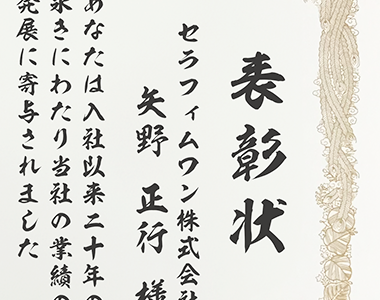 表彰状
セラフィムワン株式会社
矢野 正行 様
あなたは入社以来二十年の
永きにわたり当社の業績の
発展に寄与されました